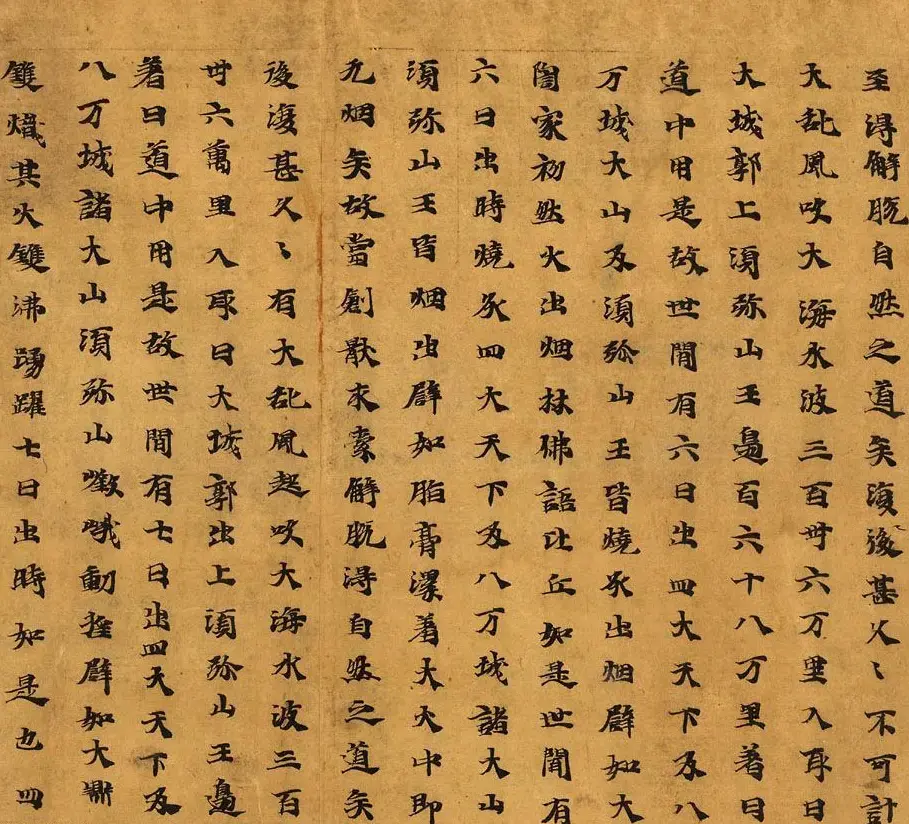 至淂解脫自然之道矣復後甚久〻不可計
大乱風吹大海水波三百卅六万里入取日
大城郭上須弥山王邊百六十八万里著日
道中用是故世間有六日出四大天下及八
万城大山及須弥山王皆燒炙出烟辟如大
陶家初然火出烟佛語比丘如是世間有
六日出時燒炙四大天下及八万城諸大山
須弥山王皆烟出辟如脂膏著大火中即
无烟矣故當創猒求索解脫淂自然之道矣
後復甚久〻有大乱風起吹大海水波三百
卅六萬里入取日大城郭出上須弥山王邊
著日道中用是故世間有七日出四天天下及
八万城諸大山須弥山峨動搖辟如大鼎
雙熾其火雙沸踴躍七日出時如是也四